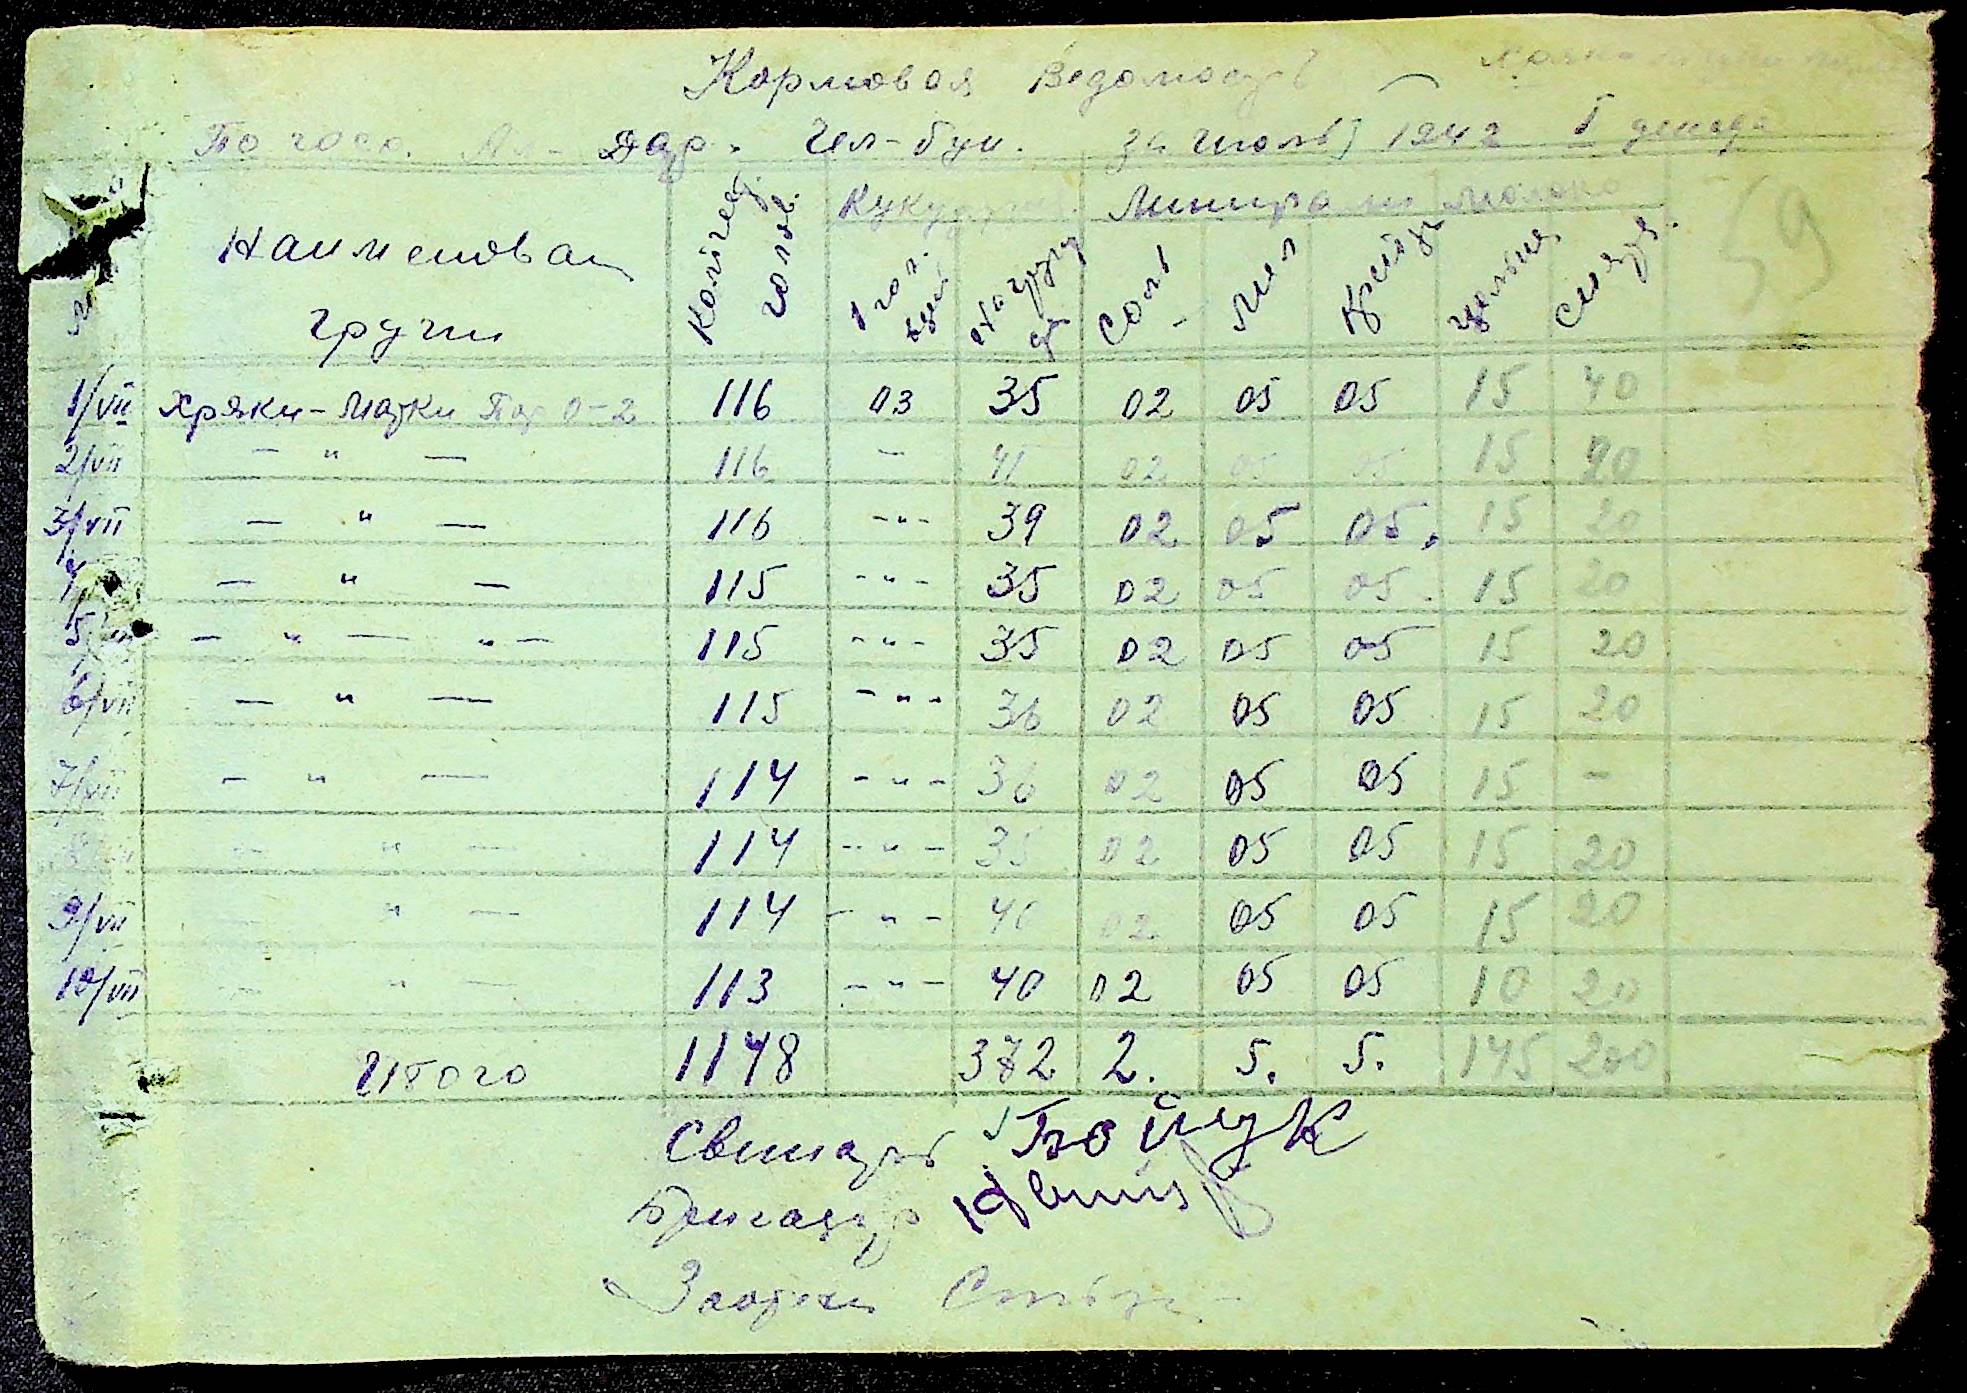 Кормовая Ведомость
По гос. Ал- Дар. Чел-бун. за июль 1942 I декада
59
Наименован группи Колічест голов. Кукуруз. Минирали молоко
1 гол. На групу Соль Мел цельное
1/VII Хряки-Матки 0-2 116 03 35 02 05 05 15 40
2/VII — " — 116 — 41 02 05 05 15 20
3/VII — " — 116 -"- 39 02 05 05. 15 20
4 — " — 115 -"- 35 02 05 05. 15 20
5/VII — " — " — 115 -"- 35 02 05 05 15 20
6/VII — " — 115 -"- 36 02 05 05 15 20
7/VII — " — 114 -"- 36 02 05 05 15 -
8/VII — " — 114 -"- 35 02 05 05 15 20
9/VII — " — 114 -"- 40 02 05 05 15 20
10/VII — " — 113 -"- 40 02 05 05 10 20
Итого 1148 372 2. 5. 5. 145 200
Свинарь Бойчук
Бригадир
Заотехн